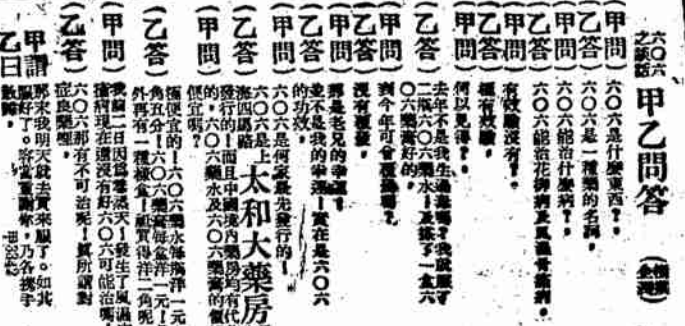 六〇六
之談話
甲乙問答
(甲問) 六〇六是什麼東西?
(乙答) 六〇六是一種藥的名詞。
(甲問) 六〇六能治什麼病?
(乙答) 六〇六能治花柳病及風濕骨痛病。
(甲問) 有效驗沒有?
(乙答) 極有效驗。
(甲問) 何以見得?
(乙答) 去年不是我生過毒嗎?我就服了
二瓶六〇六藥水!及搽了一盒六
〇六藥膏好的。
(甲問) 到今年可會復發嗎?
(乙答) 沒有復發。
(甲問) 那是老兄的幸運!
(乙答) 並不是我的幸運!實在是六〇六
的功效。
(甲問) 六〇六是何家最先發行的!
(乙答) 六〇六是上太和大藥房
海四馬路
發行的!而且中國境內藥房均有代
(甲問) 的,六〇六藥水及六〇六藥膏的價
便宜嗎?
(乙答) 極便宜的!六〇六藥水每瓶洋一元
角五分!六〇六藥膏每盒洋一元!
外再有一種樣盒!祇買得洋二角呢
(甲問) 我前一日因為落天!發生了風濕
病現在還沒有好六〇六可能治嗎
(乙答) 六〇六那有不可治呢!真所謂對
症良藥哩。
甲謂 那末我明天就去買來服了。如其
服好了。容當重謝你,乃各携手
乙曰